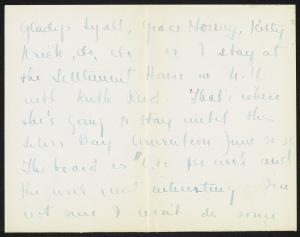 Gladys Lyall, Grace Morley, Kitty
etc. or I stay at
the Settlement House in
with Ruth Reed. That's where
she's going to stay until the
Silver Bay Convention June 20-30
The board is per week and
the work most interesting. I'm
not sure I won't do some